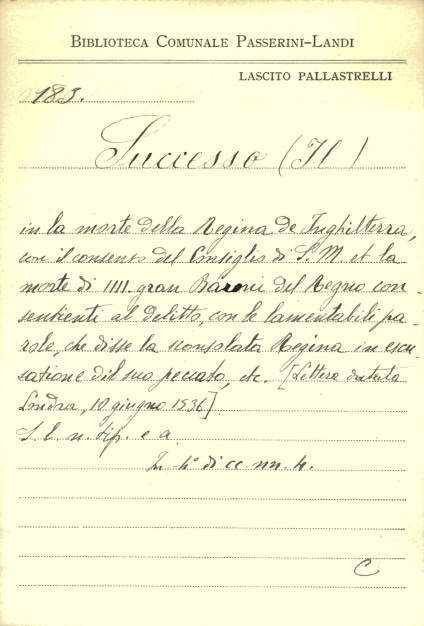 BIBLIOTECA COMUNALE PASSERINI-LANDI
LASCITO PALLASTRELLI
183.
Successo (Il)
in la morte della Regina de Inghilterra,
con il consenso del Consiglio di S. M. et la
morte di IIII. gran Baroni del Regno con-
sentienti al delitto, con le lamentabili pa-
role, che disse la sconsolata Regina in escu-
satione del suo peccato, etc. [Lettera datata
Londra, 10 giugno 1536]
S. l. n. tip. e a.
In 4° di cc. nn. 4.
C